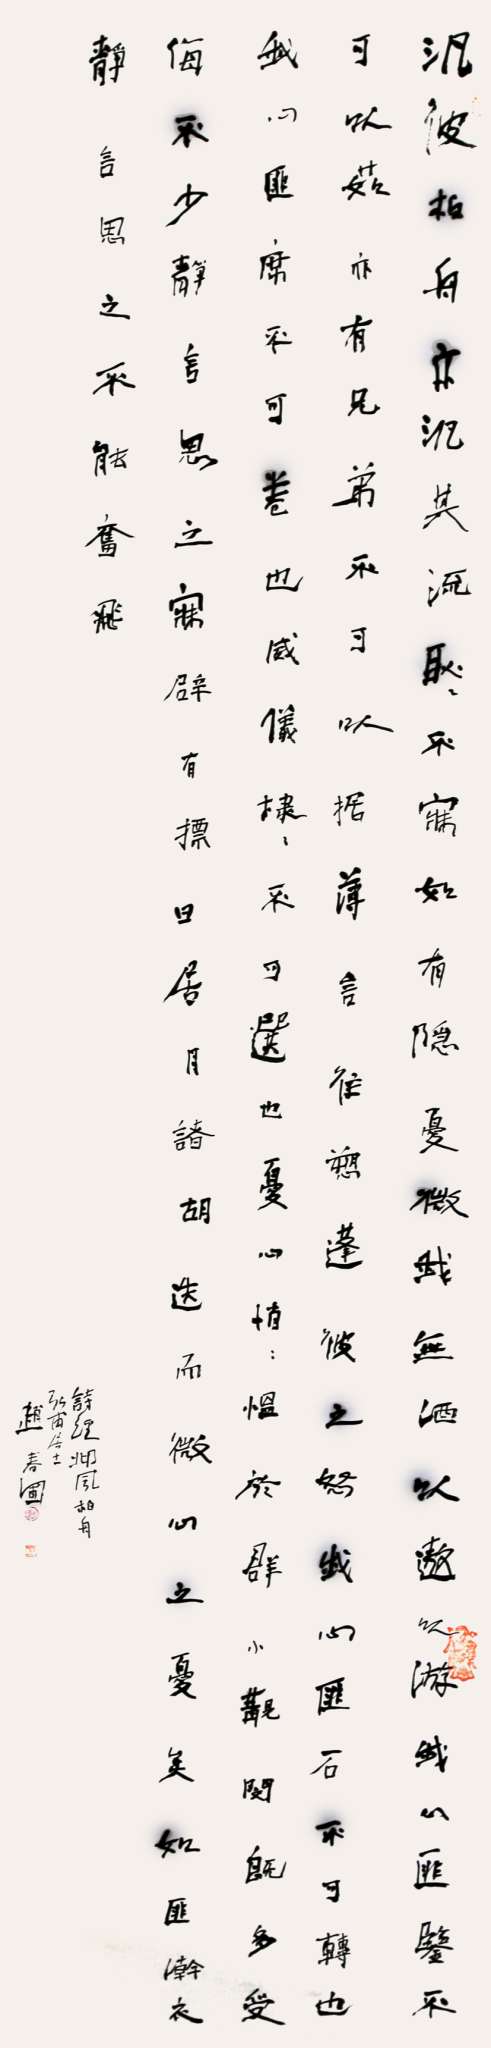 汎彼柏舟亦汎其流耿〻不寐如有隐憂微我無酒以遨以游我心匪鑒不
可以茹亦有兄弟不可以据薄言往愬逢彼之怒我心匪石不可轉也
我心匪席不可卷也威儀棣〻不可選也憂心悄〻愠於群小覯閔既多受
侮不少靜言思之寤辟有摽日居月諸胡迭而微心之憂矣如匪澣衣
靜言思之不能奮飛
詩經邶風柏舟
居士
趙春圖